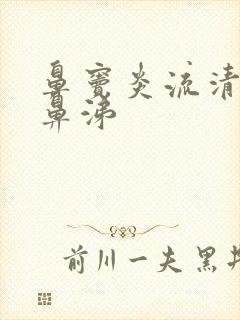 鼻窦炎流清
鼻涕
前川一夫黑